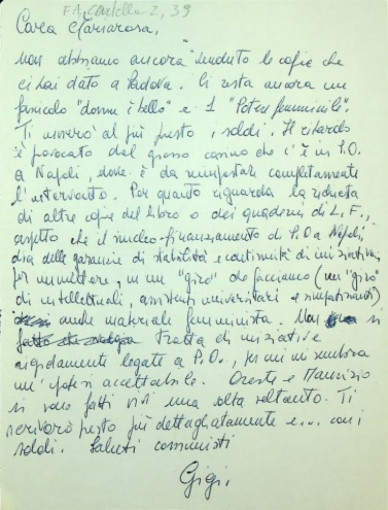 FA, cartella 2, 39
Cara Mariarosa,
non abbiamo ancora venduto le copie che
ci hai dato a Padova. Ci resta ancora un
fascicolo "donna è bello" e 1 "Potere femminile".
Ti invierò al più presto i soldi. Il ritardo
è provocato dal grosso casino che c'è in P.O.
a Napoli, dove è da reimpostare completamente
l'intervento. Per quanto riguarda la richiesta
di altre copie del libro o dei quaderni di L.F.,
aspetto che il nucleo-finanziamento di P.O. a Napoli
dia delle garanzie di stabilità e continuità di iniziativa
per immettere, in un "giro" che facciamo (un "giro"
di intellettuali, assistenti universitari e simpatizzanti)
anche materiale femminista. Non si
tratta di iniziative
rigidamente legate a P.O., per cui mi sembra
un'ipotesi accettabile. Oreste e Maurizio
si sono fatti vivi una volta soltanto. Ti
scriverò presto più dettagliatamente e... con i
soldi. Saluti comunisti
Gigi.